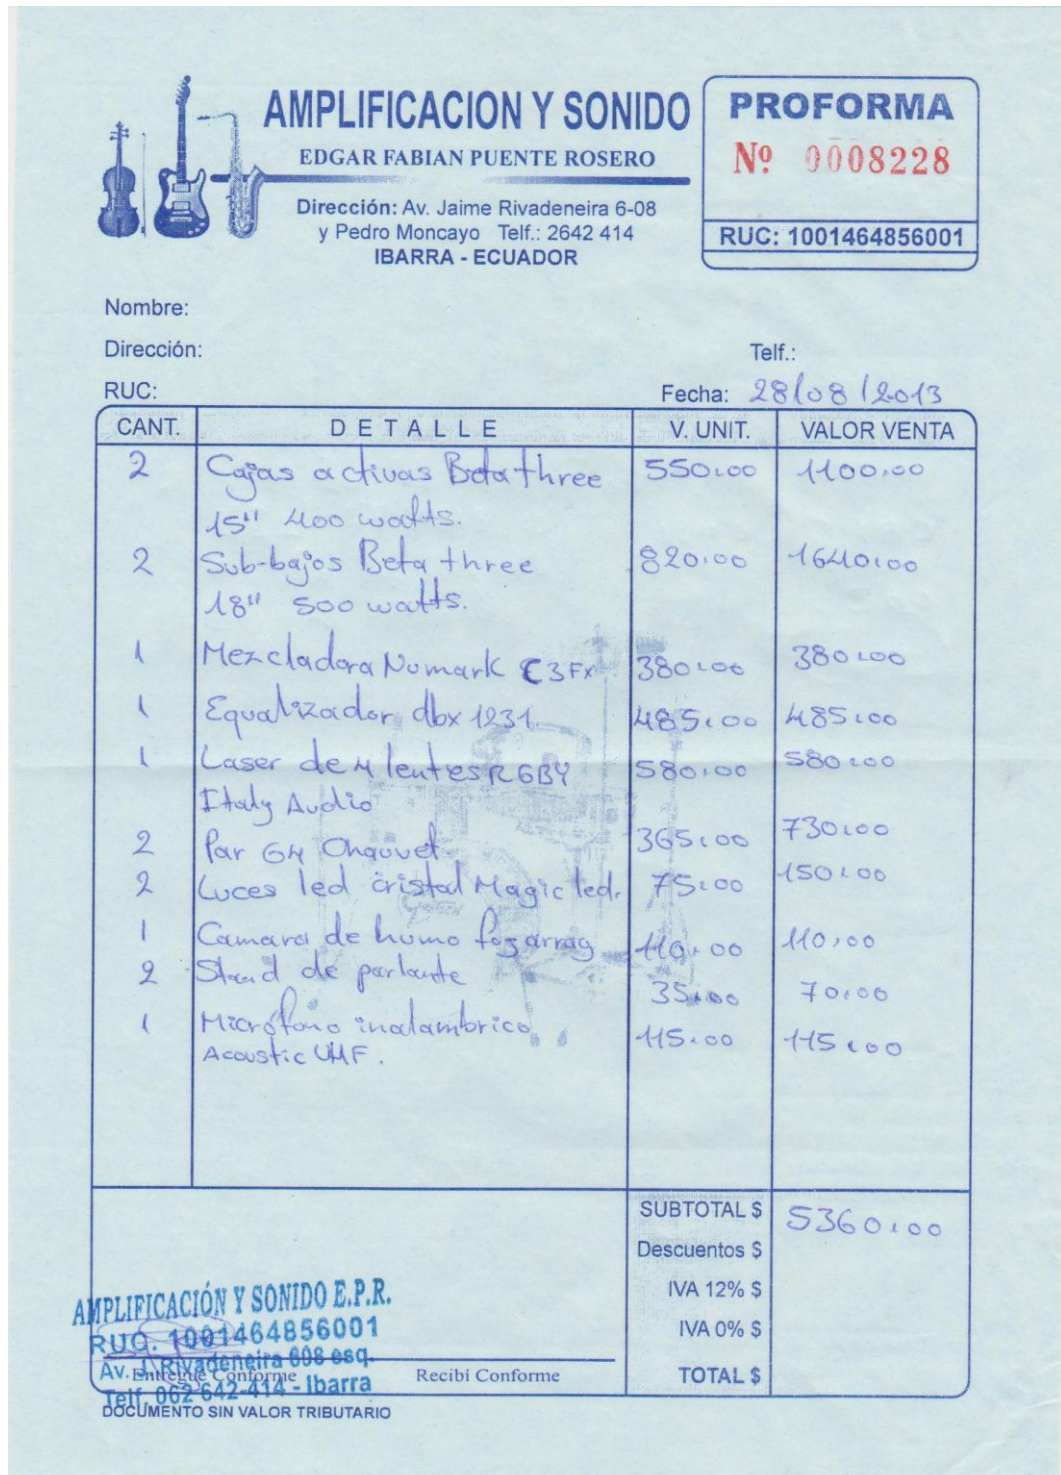 AMPLIFICACION Y SONIDO
EDGAR FABIAN PUENTE ROSERO
Dirección: Av. Jaime Rivadeneira 6-08
y Pedro Moncayo Telf.: 2642 414
IBARRA - ECUADOR
PROFORMA
Nº 0008228
RUC: 1001464856001
Nombre:
Dirección: Telf.:
RUC: Fecha: 28/08/2013
CANT. DETALLE V. UNIT. VALOR VENTA
2 Cajas activas Beta three 550.00 1100.00
15" 400 watts.
2 Sub-bajos Beta three 820.00 1640.00
18" 500 watts.
1 Mezcladora Numark C3FX 380.00 380.00
1 Equalizador dbx 1231 485.00 485.00
1 Laser de 4 lentes RGBY 580.00 580.00
Italy Audio
2 Par 64 Chauvet 365.00 730.00
2 Luces led cristal Magic led. 75.00 150.00
1 Camara de humo 110.00 110.00
2 Stand de parlante 35.00 70.00
1 Micrófono inalambrico 115.00 115.00
Acoustic UHF.
SUBTOTAL $ 5360.00
Descuentos $
IVA 12% $
IVA 0% $
TOTAL $
AMPLIFICACIÓN Y SONIDO E.P.R.
RUC. 1001464856001
Av. J. Rivadeneira 608 esq.
Telf. 062 642-414 - Ibarra
Entregue Conforme Recibi Conforme
DOCUMENTO SIN VALOR TRIBUTARIO